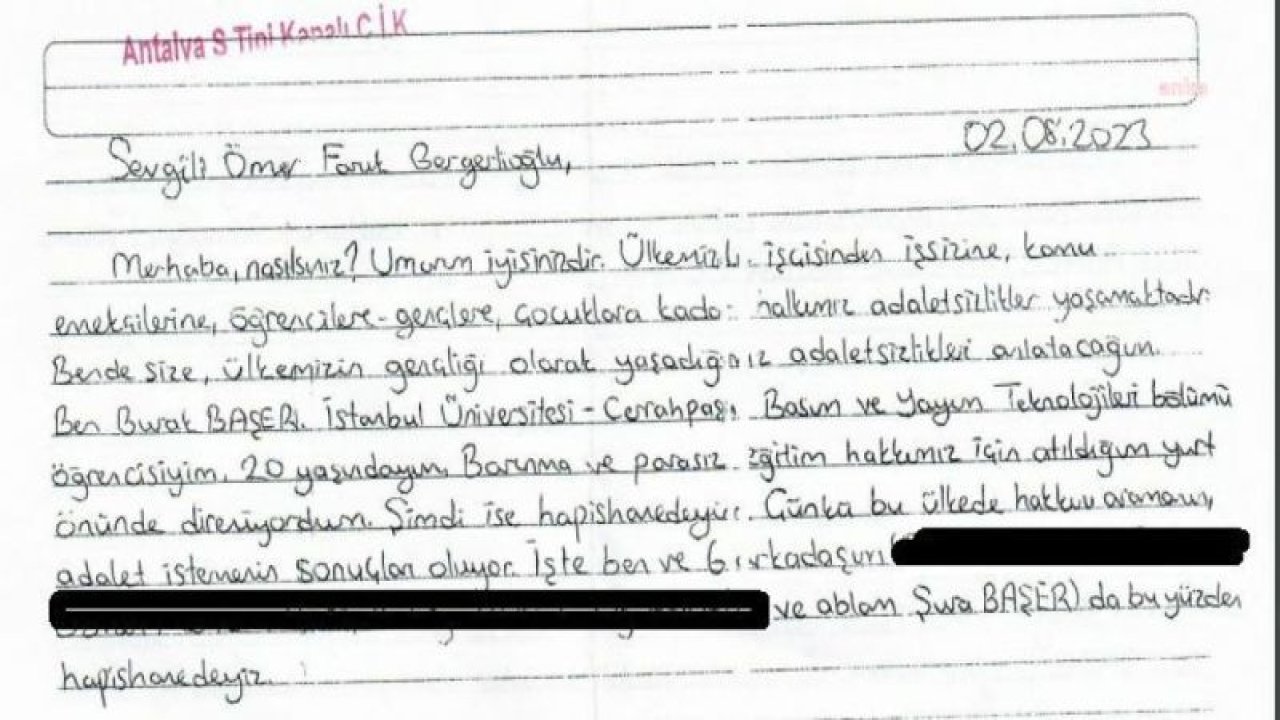 Antalya S Tipi Kapalı C İ K
anka
02.08.2023
Sevgili Ömer Faruk Gergerlioğlu,
Merhaba, nasılsınız? Umarım iyisinizdir. Ülkemizde işçisinden işsizine, kamu
emekçilerine, öğrencilere-gençlere, çocuklara kadar halkımız adaletsizlikler yaşamaktadır.
Bende size, ülkemizin gençliği olarak yaşadığımız adaletsizlikleri anlatacağım.
Ben Burak BAŞER. İstanbul Üniversitesi-Cerrahpaşa Basım ve Yayın Teknolojileri bölümü
öğrencisiyim. 20 yaşındayım. Barınma ve parasız eğitim hakkımız için atıldığım yurt
önünde direniyordum. Şimdi ise hapishanedeyim. Çünkü bu ülkede hakkını aramanın,
adalet istemenin sonuçları oluyor. İşte ben ve 6 arkadaşım
ve ablam Şura BAŞER) da bu yüzden
hapishanedeyiz.